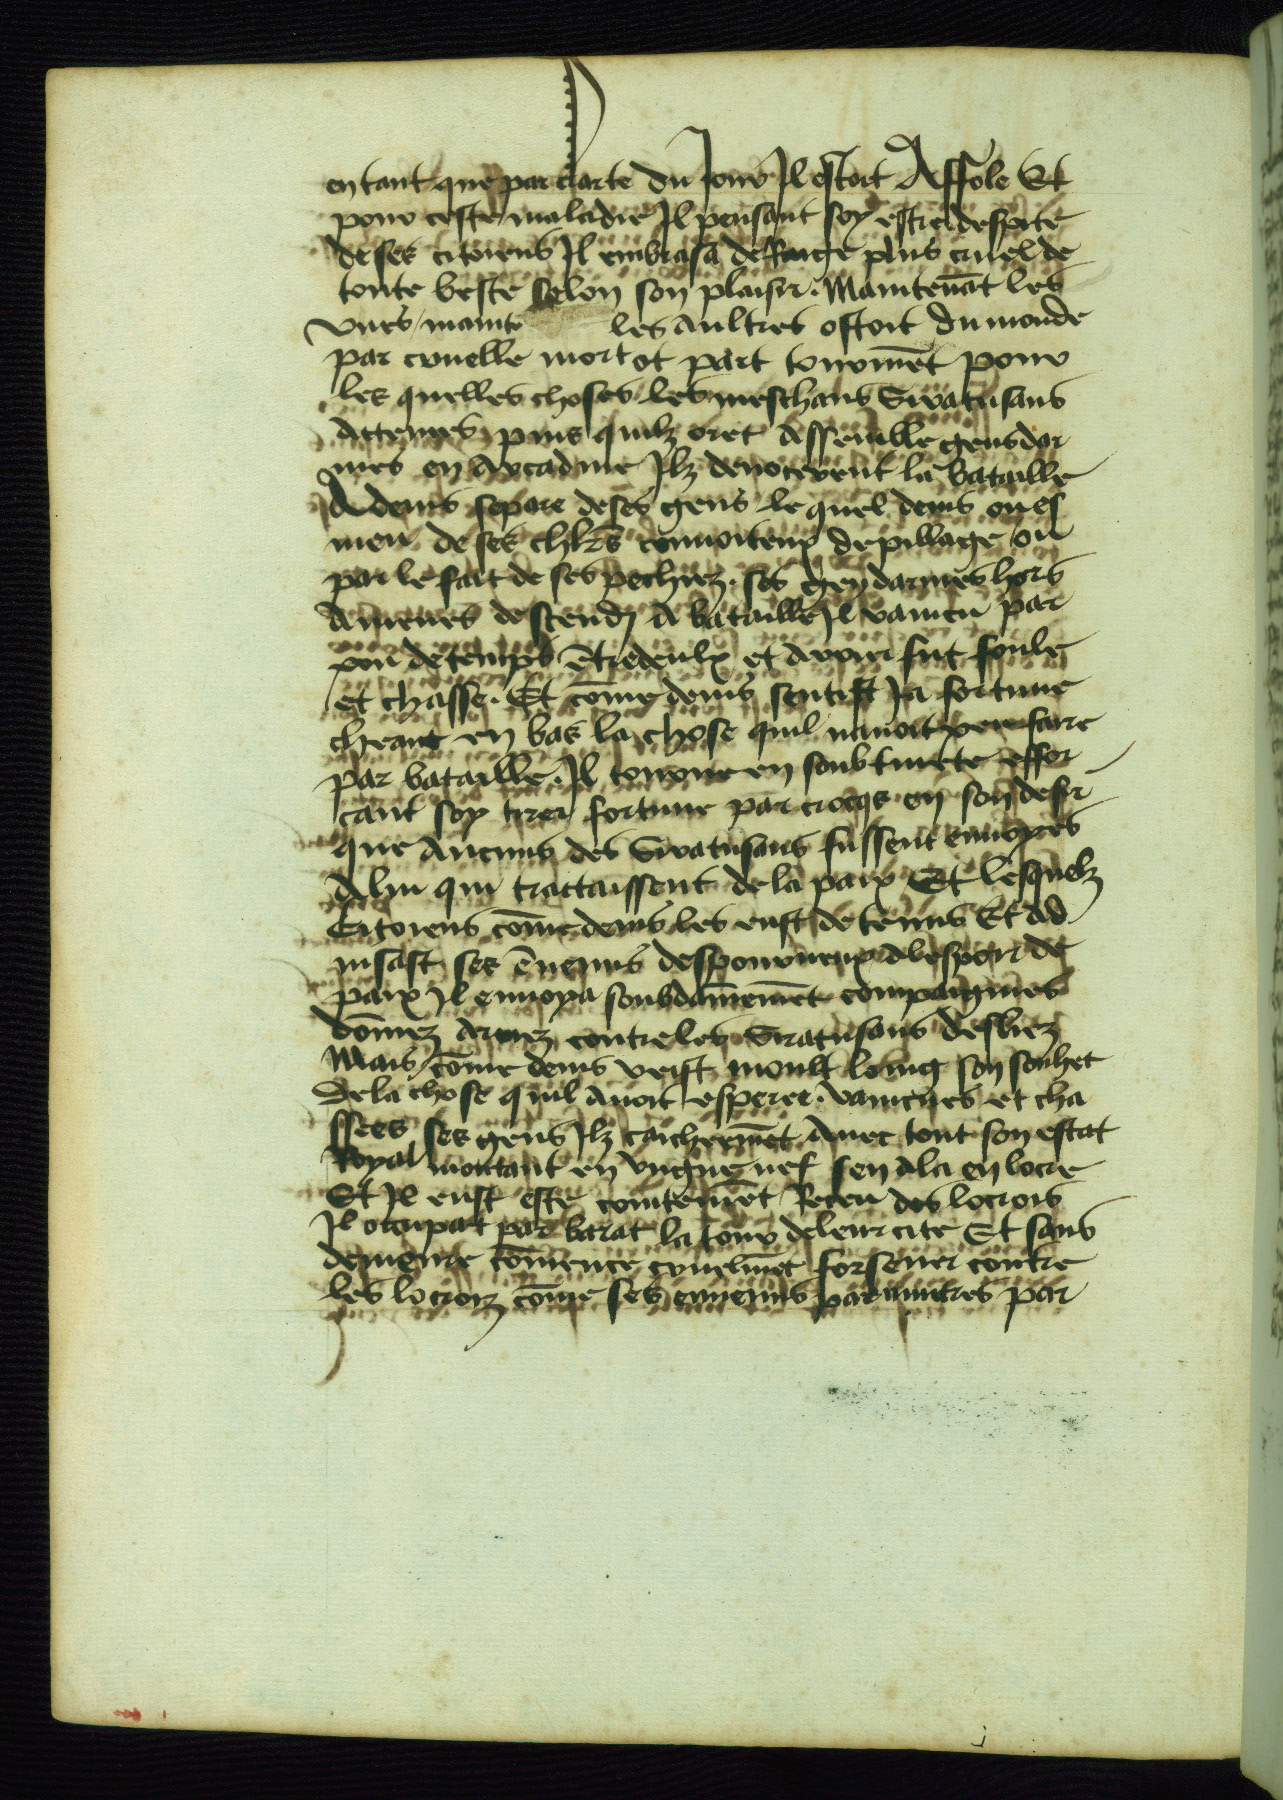 en tant que par clarte du Jour Il estoit Affole Et
pour ceste maladie Il pensant soy estre despite
de ses citoiens Il embrasa de Raige plus cruel de
toute beste selon son plaisir. Maintenāt les
vnes / mainte les Aultres ostoit du monde
par cruelle mort et part tourmēt pour
les quelles choses les meschans Siratusans
Attenues puis quilz oret Assemble gensdar
mes en Arcadine Ilz denocerent la bataille
A denis separe de ses gens le quel denis ou es
meu de ses chlrs conuoiteux de pillage ou
par le fait de ses pechiez. ses gendarmes hors
Amenes descendj A bataille Il vaincu par
pou de temps ētredeulx et Arrier fut foule
et chasse. Et cōme denis sentist Ja fortune
cheant en bas la chose quil nauoit peu faire
par bataille. Il tourne en soubtiuete effor
cant soy tirer fortune par crocqs en son desir
que Aucuns des Siratusans fussent enuoyes
A luj qui traictaissent de la paix Et lesquelz
Citoiens cōme denis les eust detenus Et Ad
uisast ses ēnemis despourueux A lespoir de
paix Il enuoya soubdainemēt compaignies
dōmez Armez contre les Siratusans desliez
Mais / cōme denis veist moult loing son souhet
De la chose quil Auoit esperer. vaincues et cha
ssees ses gens Ilz caicheemēt Auec tout son estat
Royal montant en vngne nef sen Ala en locre
Et Il eust este cointemēt Receu des locrois
Il occupat par barat la tour de leur cite Et sans
demeure cōmence cruelmēt forsener contre
les locroiz cōme ses ennemis par autres par